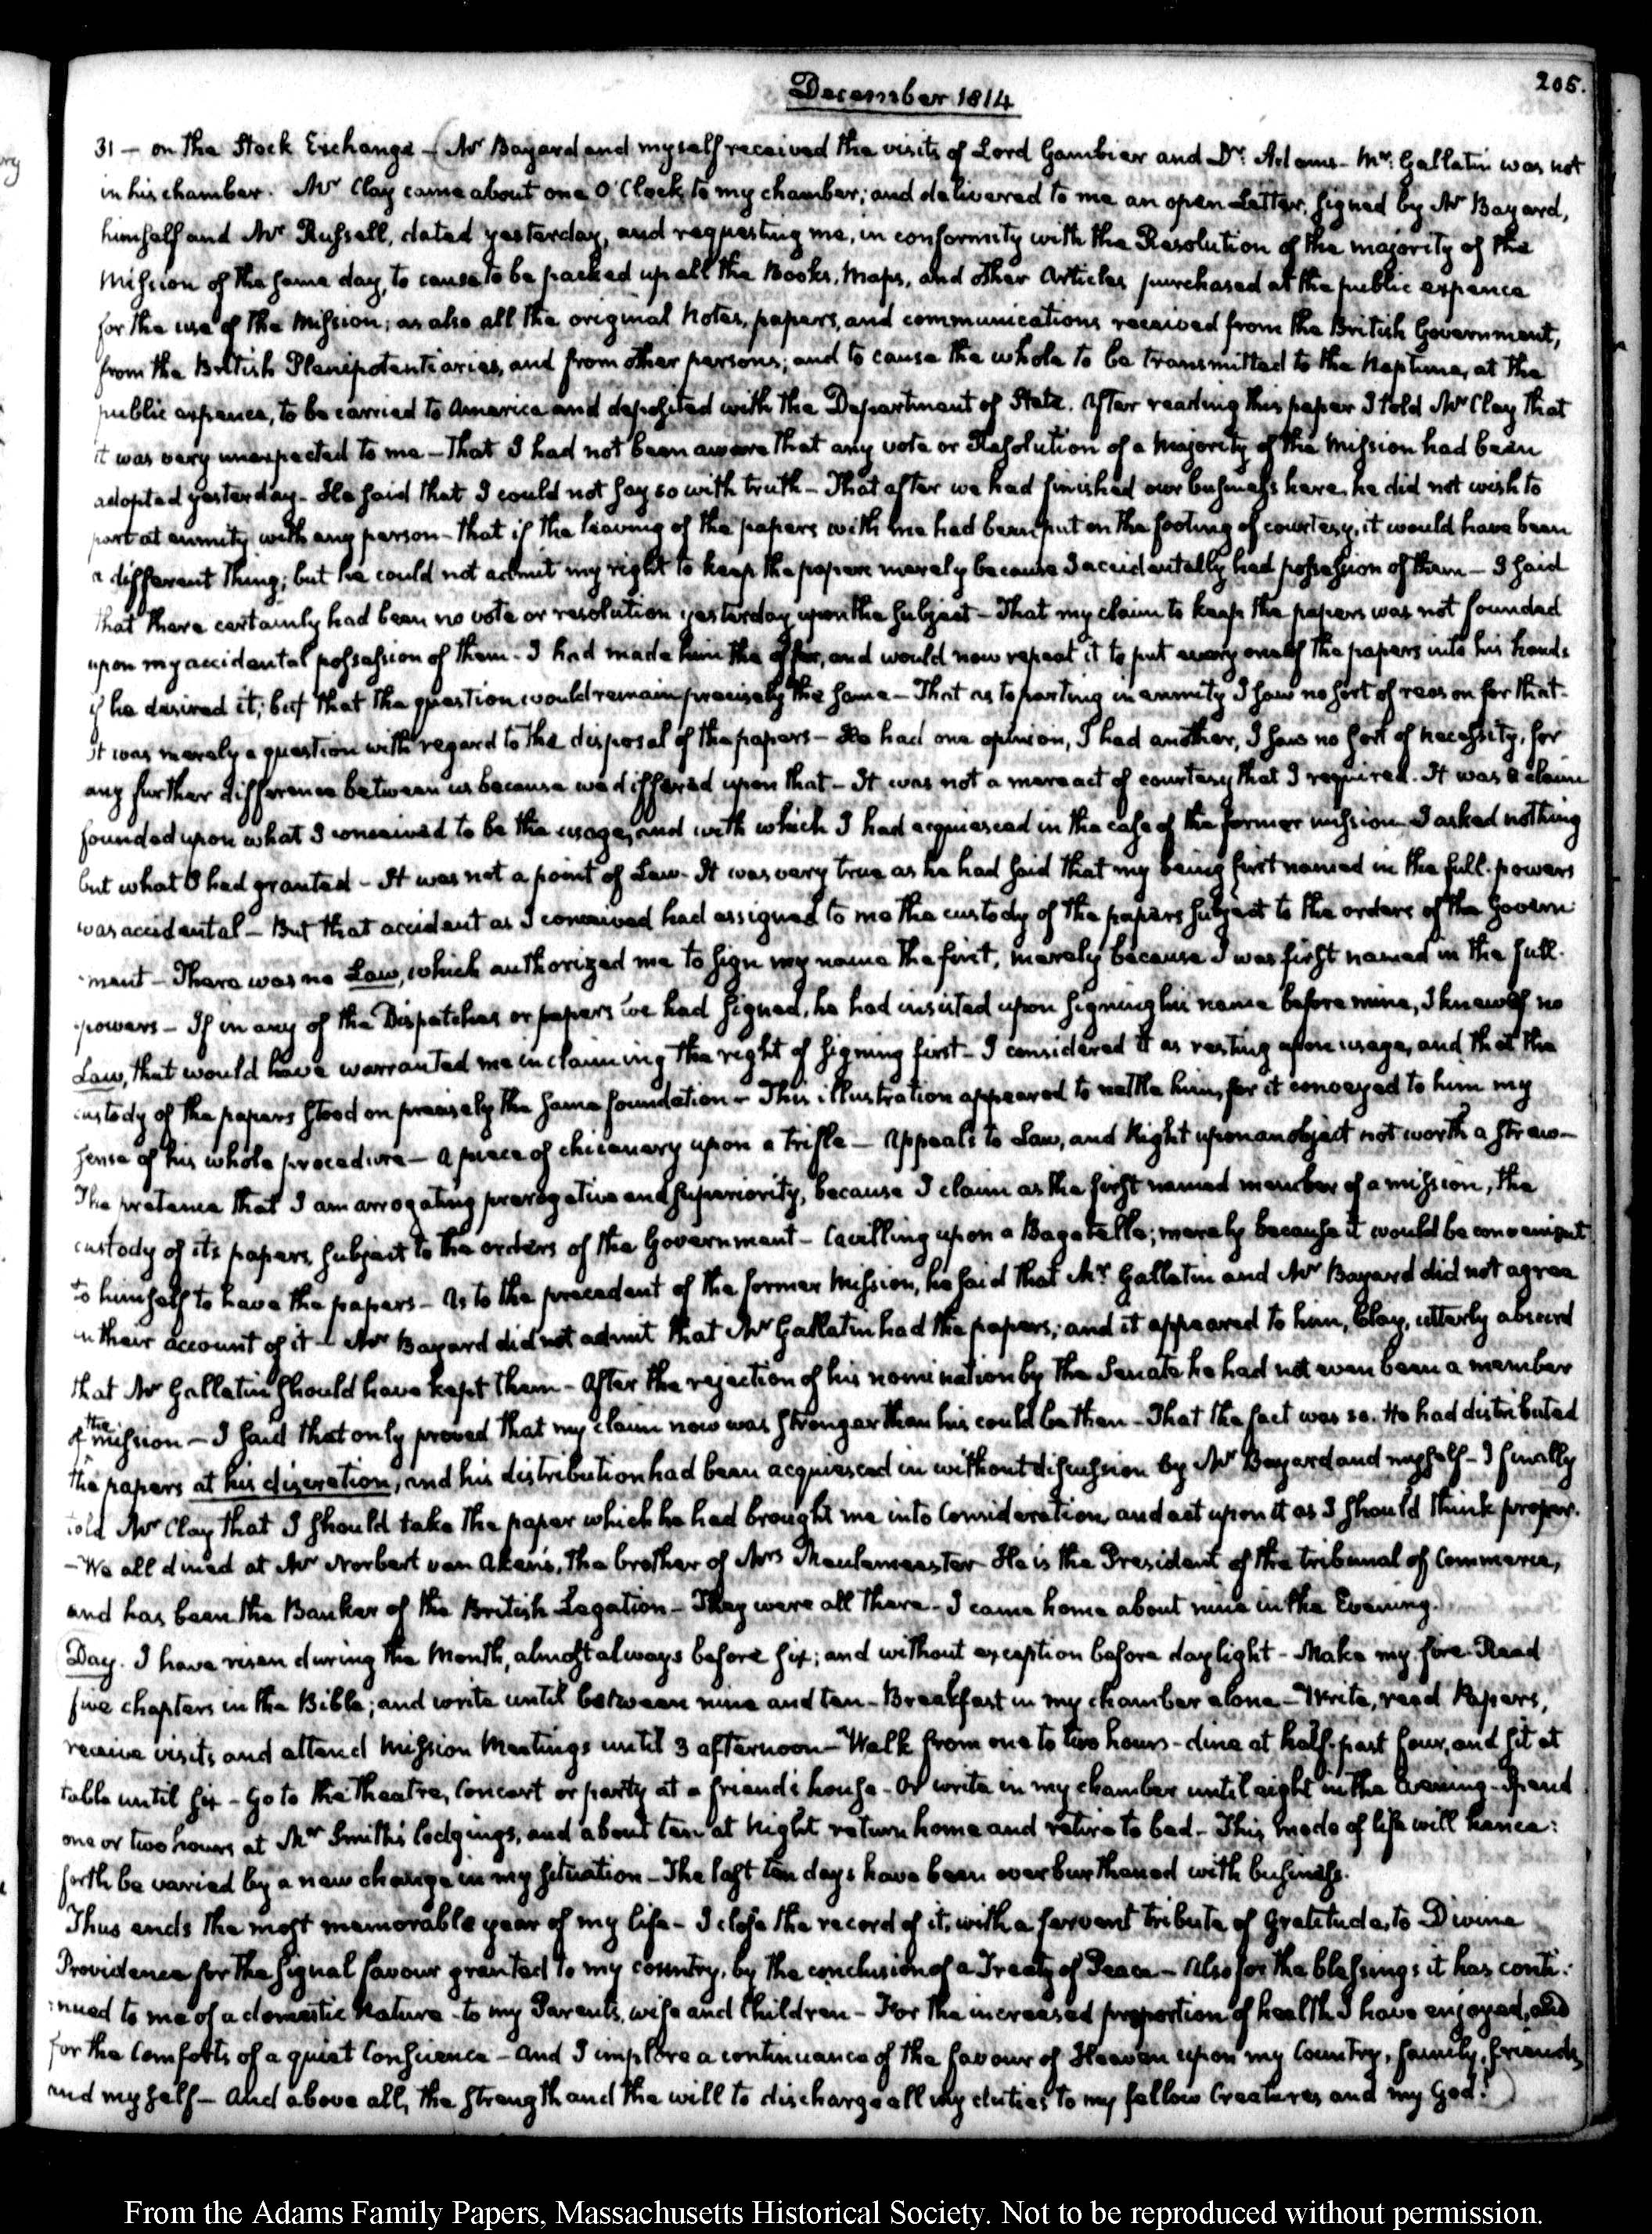 205.
December 1814
31 — on the Stock Exchange — (Mr Bayard and myself received the visits of Lord Gambier and Dr. Adams — Mr. Gallatin was not
in his chamber. Mr Clay came about one O'Clock to my chamber; and delivered to me an open Letter, signed by Mr Bayard,
himself and Mr Russell, dated yesterday, and requesting me, in conformity with the Resolution of the majority of the
Mission of the same day, to cause to be packed up all the Books, Maps, and other Articles purchased at the public expence
for the use of the Mission; as also all the original Notes, papers, and communications received from the British Government,
from the British Plenipotentiaries, and from other persons; and to cause the whole to be transmitted to the Neptune, at the
public expence, to be carried to America and deposited with the Department of State. After reading this paper I told Mr Clay that
it was very unexpected to me — That I had not been aware that any vote or Resolution of a Majority of the Mission had been
adopted yesterday — He said that I could not say so with truth — That after we had finished our business here, he did not wish to
part at enmity with any person — that if the leaving of the papers with me had been put on the footing of courtesy, it would have been
a different thing; but he could not admit my right to keep the papers merely because I accidentally had possession of them — I said
that there certainly had been no vote or resolution yesterday upon the subject — That my claim to keep the papers was not founded
upon my accidental possession of them — I had made him the offer, and would now repeat it to put every one of the papers into his hands
if he desired it; but that the question would remain precisely the same — That as to parting in enmity I saw no sort of reason for that.
it was merely a question with regard to the disposal of the papers — He had one opinion, I had another, I saw no sort of necessity, for
any further difference between us because we differed upon that — It was not a mere act of courtesy that I required. It was a claim
founded upon what I conceived to be the usage, and with which I had acquiesced in the case of the former mission — I asked nothing
but what I had granted — It was not a point of Law — It was very true as he had said that my being first named in the full-powers
was accidental — But that accident as I conceived had assigned to me the custody of the papers subject to the orders of the Govern-
-ment — There was no Law, which authorized me to sign my name the first, merely because I was first named in the full-
-powers — If in any of the Dispatches or papers we had signed, he had insisted upon signing his name before mine, I knew of no
Law, that would have warranted me in claiming the right of signing first — I considered it as resting upon usage, and that the
custody of the papers stood on precisely the same foundation — This illustration appeared to nettle him, for it conveyed to him my
sense of his whole procedure — a piece of chicanery upon a trifle — Appeals to Law, and Right upon an object not worth a straw —
The pretence that I am arrogating prerogative and superiority, because I claim as the first named member of a mission, the
custody of its papers, subject to the orders of the Government — Cavilling upon a Bagatelle; merely because it would be convenient
to himself to have the papers — As to the precedent of the former Mission, he said that Mr Gallatin and Mr Bayard did not agree
in their account of it — Mr Bayard did not admit that Mr Gallatin had the papers; and it appeared to him, Clay, utterly absurd
that Mr Gallatin should have kept them — After the rejection of his nomination by the Senate he had not even been a member
of the mission — I said that only proved that my claim now was stronger than his could be then — That the fact was so. He had distributed
the papers at his discretion, and his distribution had been acquiesced in without discussion by Mr Bayard and myself — I finally
told Mr Clay that I should take the paper which he had brought me into Consideration, and act upon it as I should think proper.
— We all dined at Mr Norbert van Aken's, the brother of Mrs Meulemeester — He is the President of the tribunal of Commerce,
and has been the Banker of the British Legation — They were all there — I came home about nine in the Evening.
Day. I have risen during the Month, almost always before six; and without exception before daylight — Make my fire — Read
five chapters in the Bible; and write until between nine and ten — Breakfast in my chamber alone — Write, read Papers,
receive visits, and attend Mission Meetings until 3 afternoon — Walk from one to two hours — dine at half-past four, and sit at
table until six — Go to the theatre, Concert or party at a friend's house — Or write in my chamber until eight in the Evening — Spend
one or two hours at Mr Smith's lodgings, and about ten at Night return home and retire to bed — This mode of life will hence:
forth be varied by a new change in my situation — The last ten days have been overburthened with business.
Thus ends the most memorable year of my life — I close the record of it, with a fervent tribute of Gratitude, to Divine
Providence for the signal favour granted to my country, by the conclusion of a Treaty of Peace — Also for the blessings it has conti:
:nued to me of a domestic Nature — to my Parents, wife and Children — For the increased proportion of health I have enjoyed, and
for the Comforts of a quiet Conscience — And I implore a continuance of the favour of Heaven upon my Country, family, friends,
and myself — And above all, the strength and the will to discharge all my duties to my fellow Creatures, and my God!)
From the Adams Family Papers, Massachusetts Historical Society. Not to be reproduced without permission.